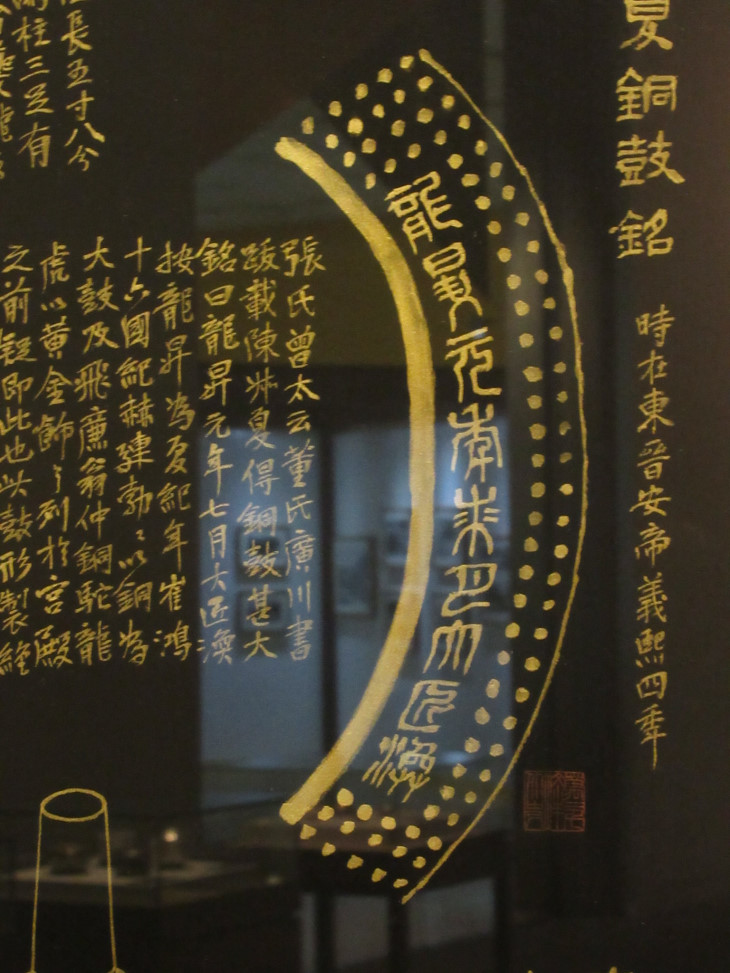 夏銅鼓銘
時在東晉安帝義熙四年
龍昇元年 大匠渙
張氏曾太云董氏廣川書
跋載陳艸夏得銅鼓甚大
銘曰龍昇元年七月大匠渙
按龍昇為夏紀年崔鴻
十六國紀赫連勃〻以銅為
大鼓及飛廉翁仲銅駝龍
虎以黃金飾〻列於宮殿
之前疑即此也此鼓形製
長五寸八分
柱三足有